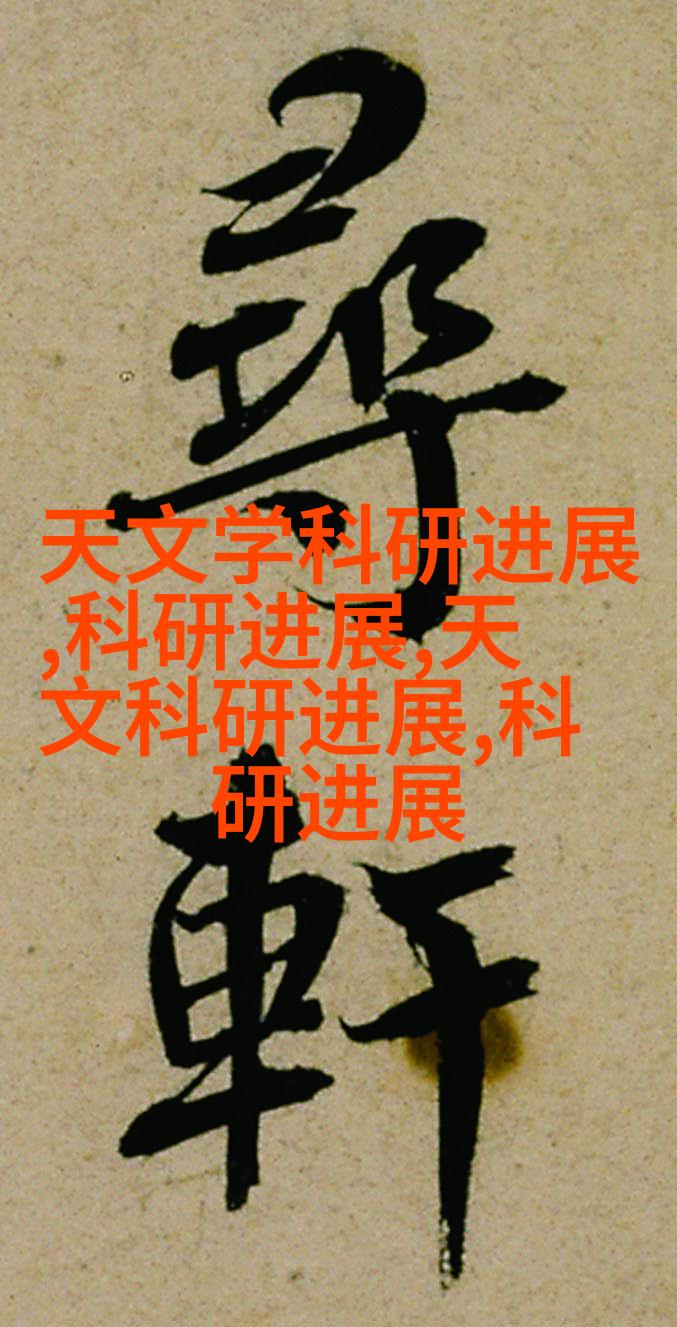 尋
軒
天文学科研进展
,科研进展,天
文科研进展,科
研进展